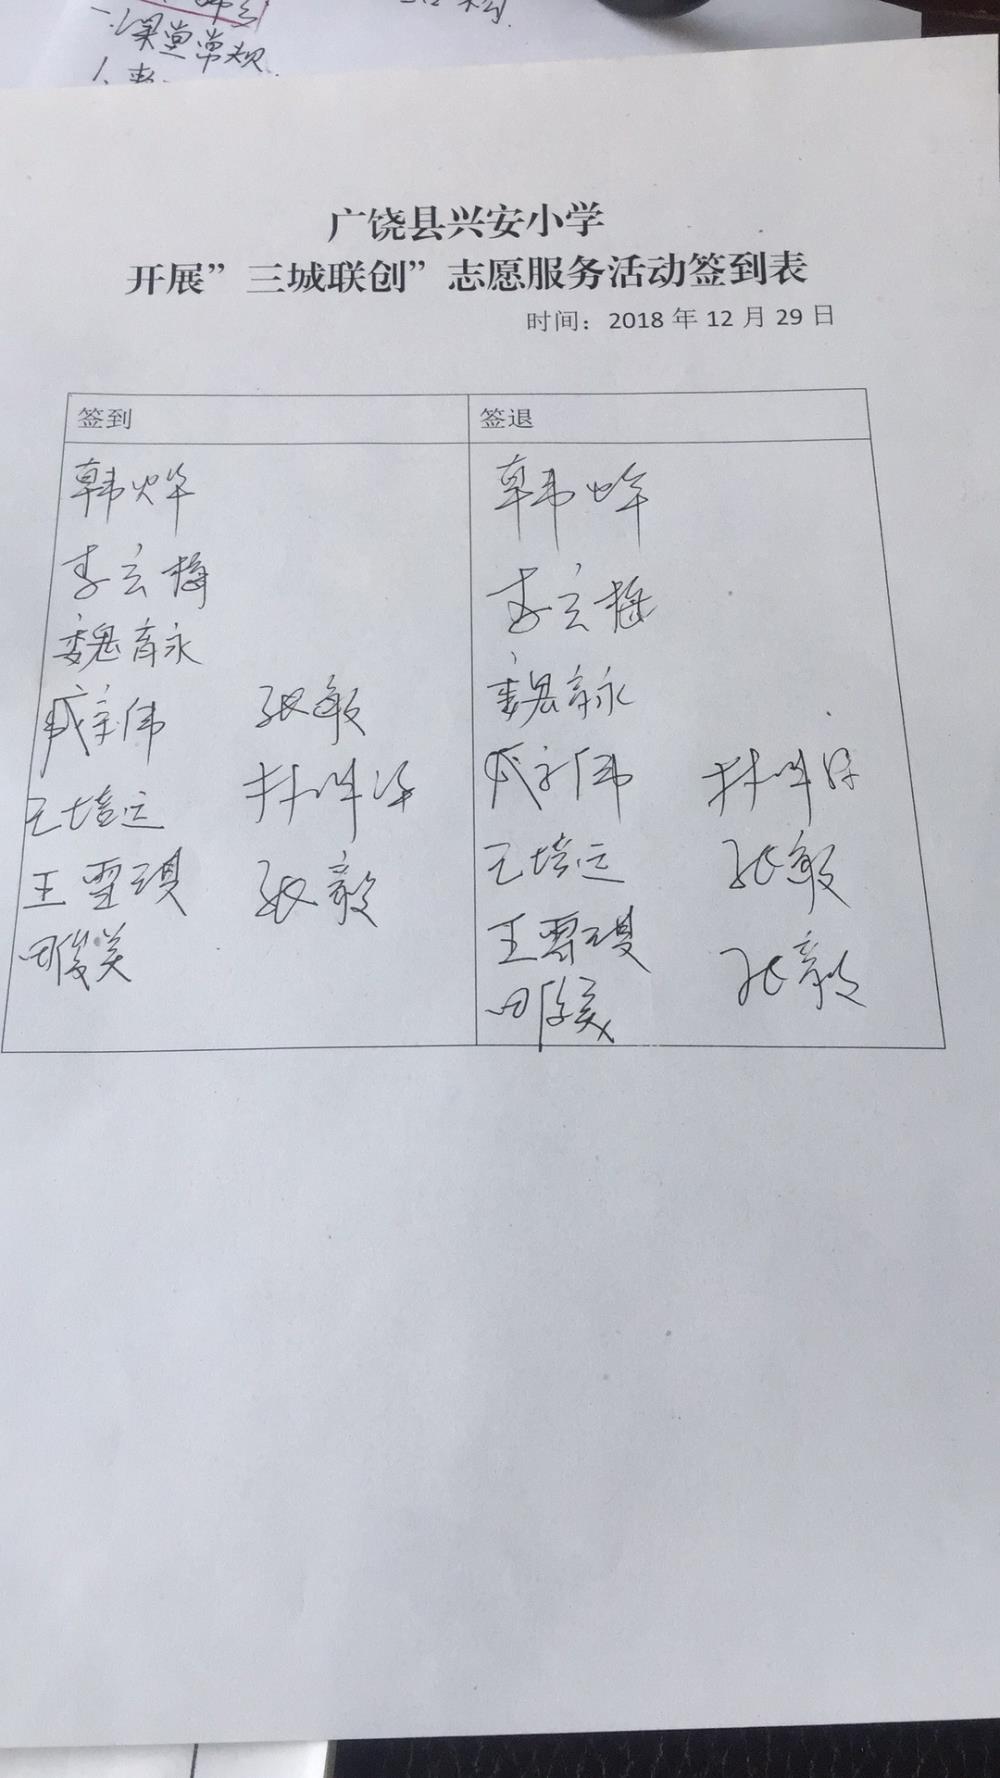 一.课堂常规
广饶县兴安小学
开展”三城联创”志愿服务活动签到表
时间：2018年12月29日
签到 签退
韩烨 韩烨
李云梅 李云梅
魏育永 魏育永
张敏
王培运 王培运 张敏
王雪琪 张毅 王雪琪
田俊美 田俊美 张毅